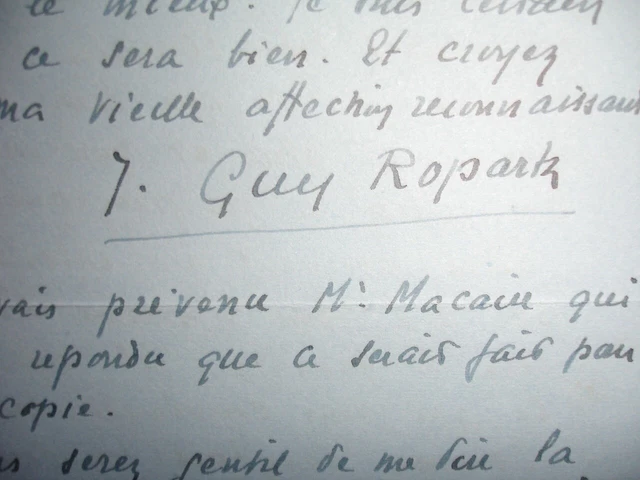 le mieux. Je suis certain
ce sera bien. Et croyez
ma vieille affection reconnaissant
J. Guy Ropartz
vais prévenu Mr. Macaire qui
repondu que ce serait fait par
copie.
serez gentil de me dire la